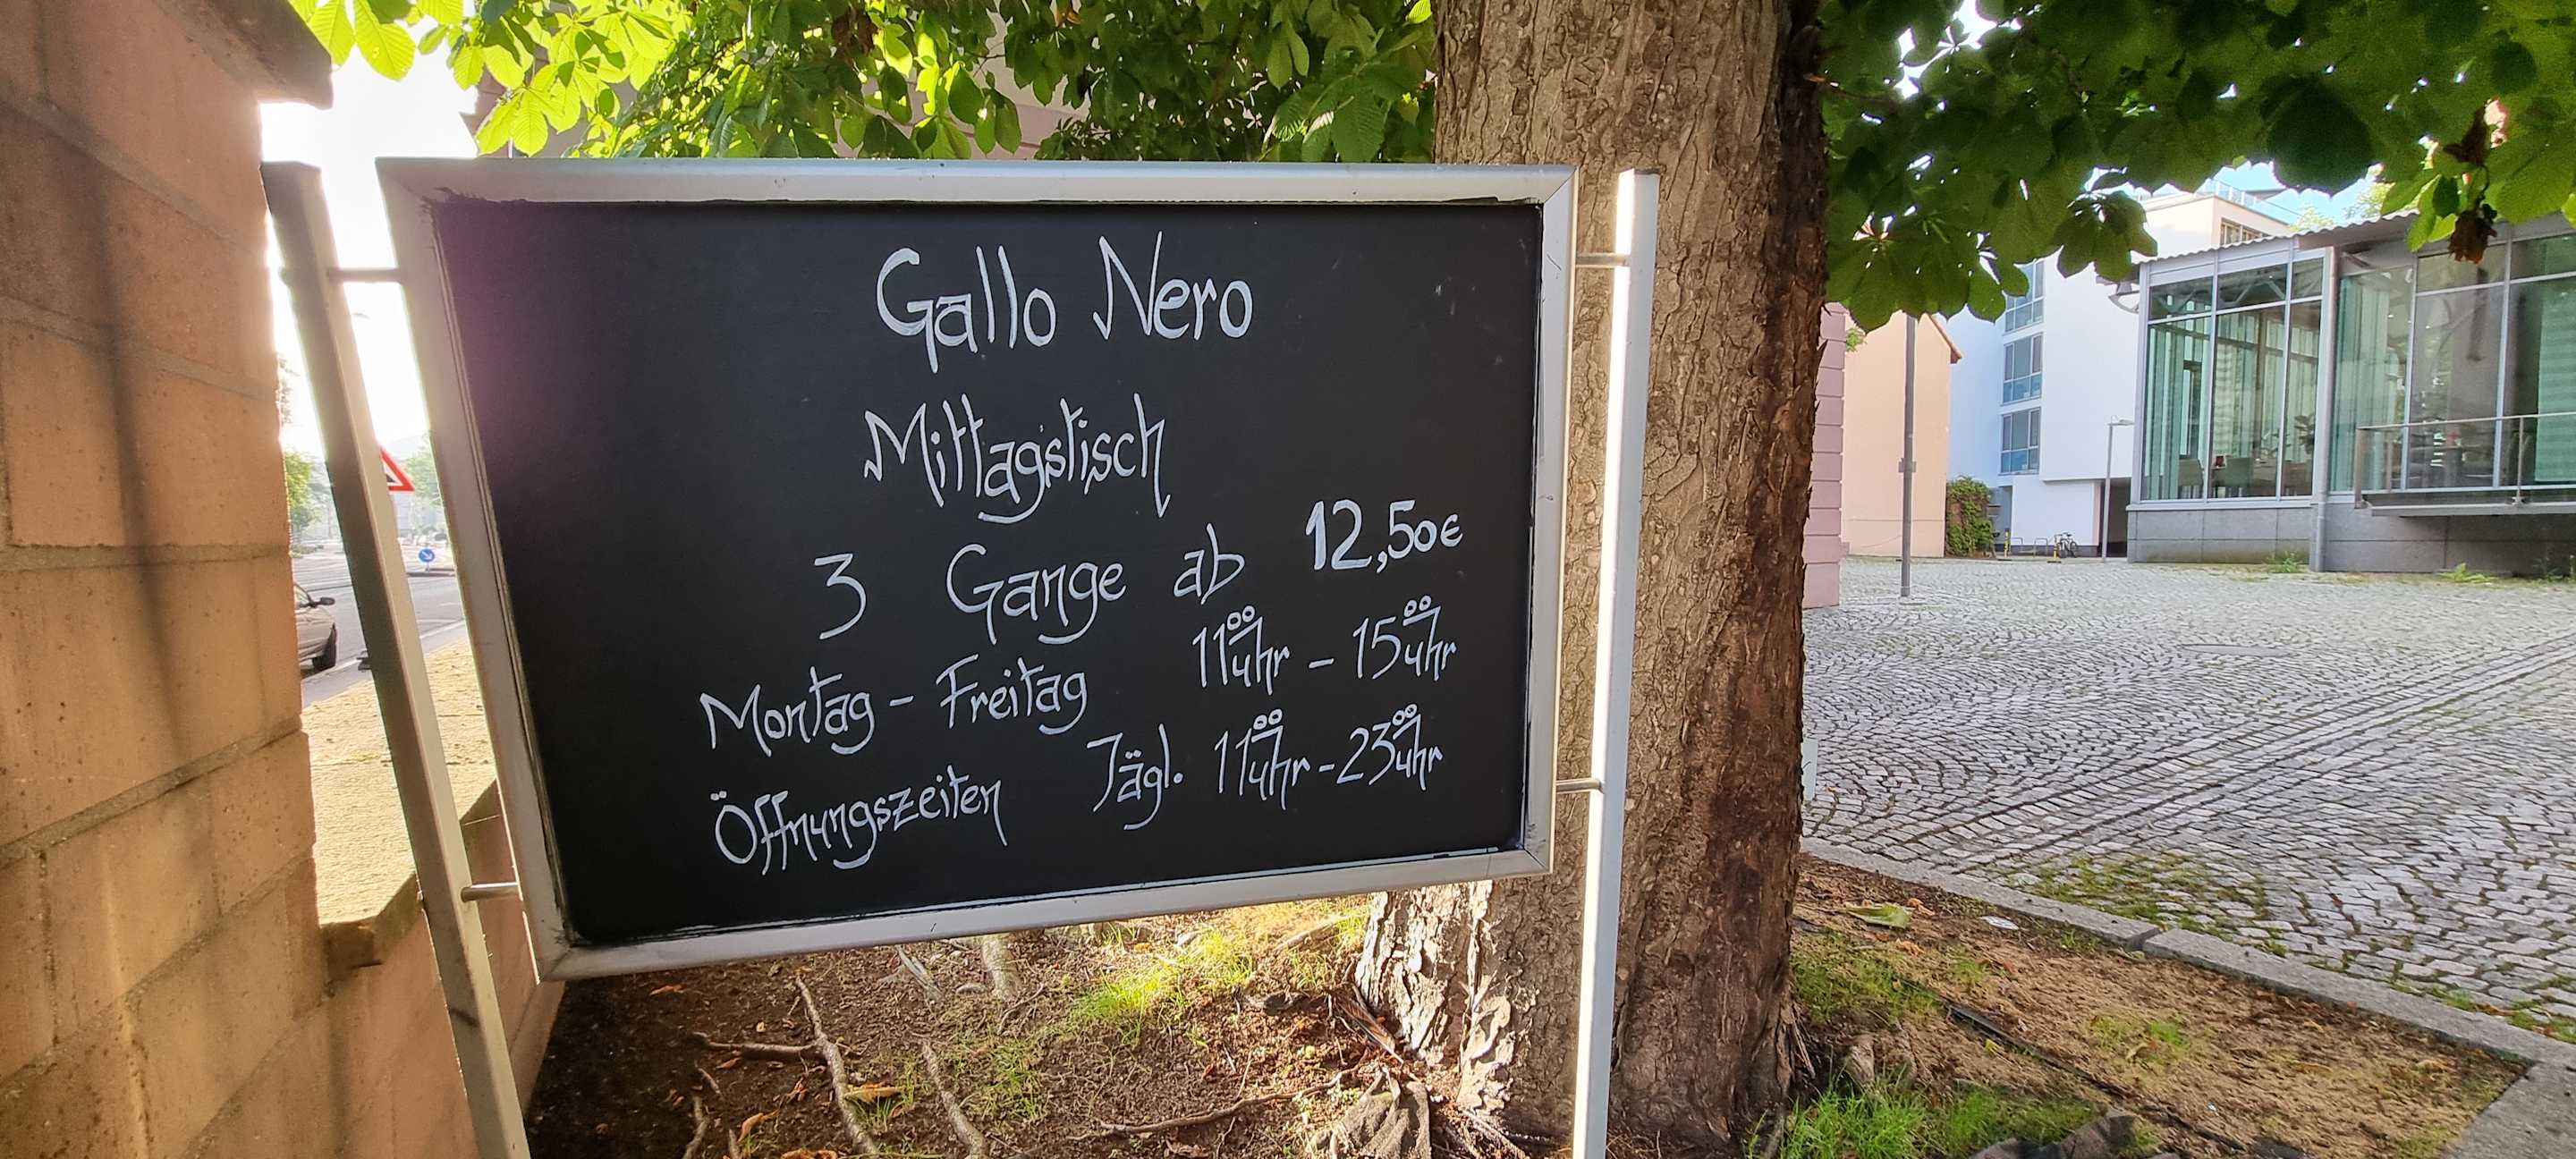 Gallo Nero
Mittagstisch
3 Gange ab 12,50€
Montag - Freitag 11⁰⁰uhr - 15⁰⁰uhr
Öffnungszeiten Tägl. 11⁰⁰uhr - 23⁰⁰uhr